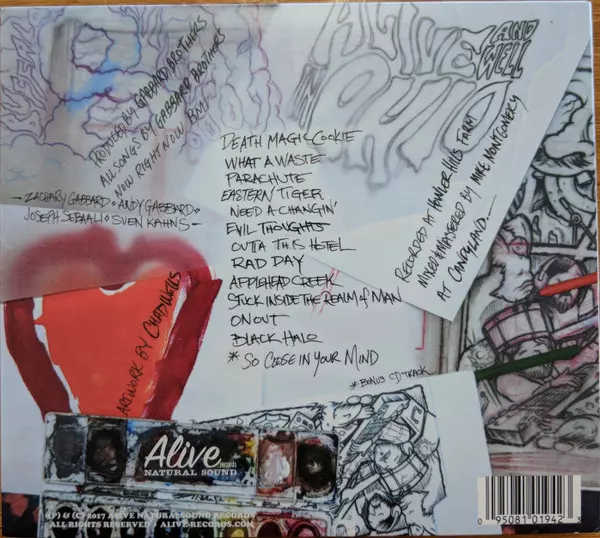 ALIVE
AND
WELL
OHIO
PRODUCED BY GABBARD BROTHERS
ALL SONGS BY GABBARD BROTHERS
NOW RIGHT NOW BMI
- ZACHARY GABBARD · ANDY GABBARD ·
JOSEPH SEBAALI · SVEN KAHNS -
DEATH MAGIC COOKIE
WHAT A WASTE
PARACHUTE
EASTERN TIGER
NEED A CHANGIN'
EVIL THOUGHTS
OUTTA THIS HOTEL
RAD DAY
APPLEHEAD CREEK
STUCK INSIDE THE REALM of MAN
ON OUT
BLACK HALO
* SO CLOSE IN YOUR MIND
* BONUS CD TRACK
RECORDED AT HOWLER HILLS FARM
MIXED & MASTERED BY MIKE MONTGOMERY
AT CANDYLAND
ARTWORK BY CHAD WELLS
Alive
records
NATURAL SOUND
(P) & (C) 2017 ALIVE NATURALSOUND RECORDS
ALL RIGHTS RESERVED • ALIVE-RECORDS.COM
0 95081 01942 3